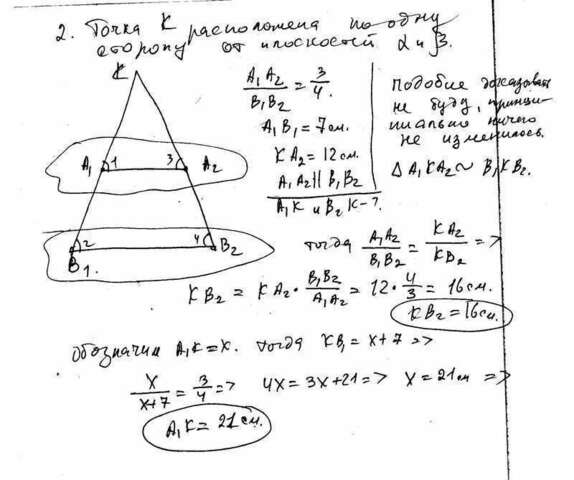 2. Точка K расположена по одну
сторону от плоскостей α и β.
K
A₁ 1 3 A₂
B₁. 2 4 B₂
A₁A₂/B₁B₂ = 3/4.
A₁B₁ = 7см.
KA₂ = 12см.
A₁A₂ || B₁B₂
A₁K и B₂K - ?
подобие доказывать
не буду, принци-
пиально ничего
не изменилось.
Δ A₁KA₂ ~ B₁KB₂.
тогда A₁A₂/B₁B₂ = KA₂/KB₂ =>
KB₂ = KA₂ · B₁B₂/A₁A₂ = 12 · 4/3 = 16см.
KB₂ = 16см.
обозначим A₁K = x. тогда KB₁ = x + 7 =>
x/x+7 = 3/4 => 4x = 3x + 21 => x = 21см =>
A₁K = 21см.